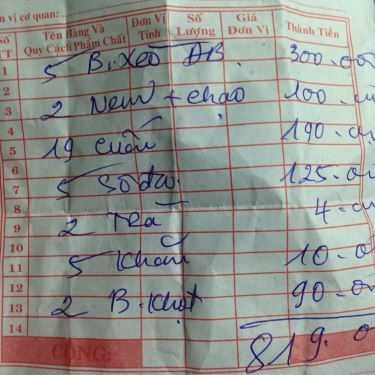 n vị cơ quan:
Số TT Tên Hàng Và Quy Cách Phẩm Chất Đơn Vị Tính Số Lượng Giá Đơn Vị Thành Tiền
1 5 B. Xèo ĐB 300.00
2
3 2 Nem + chạo 100.0
4
5 19 cuốn 190.0
6
7 5 Sôđa 125.0
8
9 2 Trà 4.0
10
11 5 Khăn 10.0
12
13 2 B. Khọt 90.0
14 819.0
CỘNG: